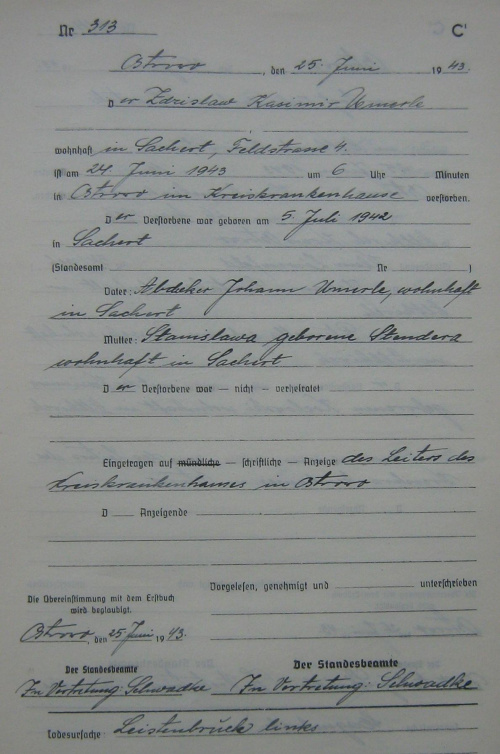 Nr 313 C¹
Ostrowo, den 25. Juni 1943.
Der Zdzislaw Kasimir Umerle
wohnhaft in Sachert, Feldstrasse 4.
ist am 24 Juni 1943 um 6 Uhr Minuten
in Ostrowo im Kreiskrankenhause verstorben.
Der Verstorbene war geboren am 5. Juli 1942
in Sachert
(Standesamt Nr )
Vater: Abdeker Johann Umerle, wohnhaft
in Sachert
Mutter: Stanislawa geborene Stendera
wohnhaft in Sachert
Der Verstorbene war — nicht — verheiratet
Eingetragen auf mündliche — schriftliche — Anzeige des Leiters des
Kreiskrankenhauses in Ostrowo
D Anzeigende
Vorgelesen, genehmigt und unterschrieben
Die Übereinstimmung mit dem Erstbuch
wird beglaubigt.
Ostrowo, den 25 Juni 1943.
Der Standesbeamte
In Vertretung: Schwadke
Der Standesbeamte
In Vertretung: Schwadke
Todesursache: Leistenbruck links